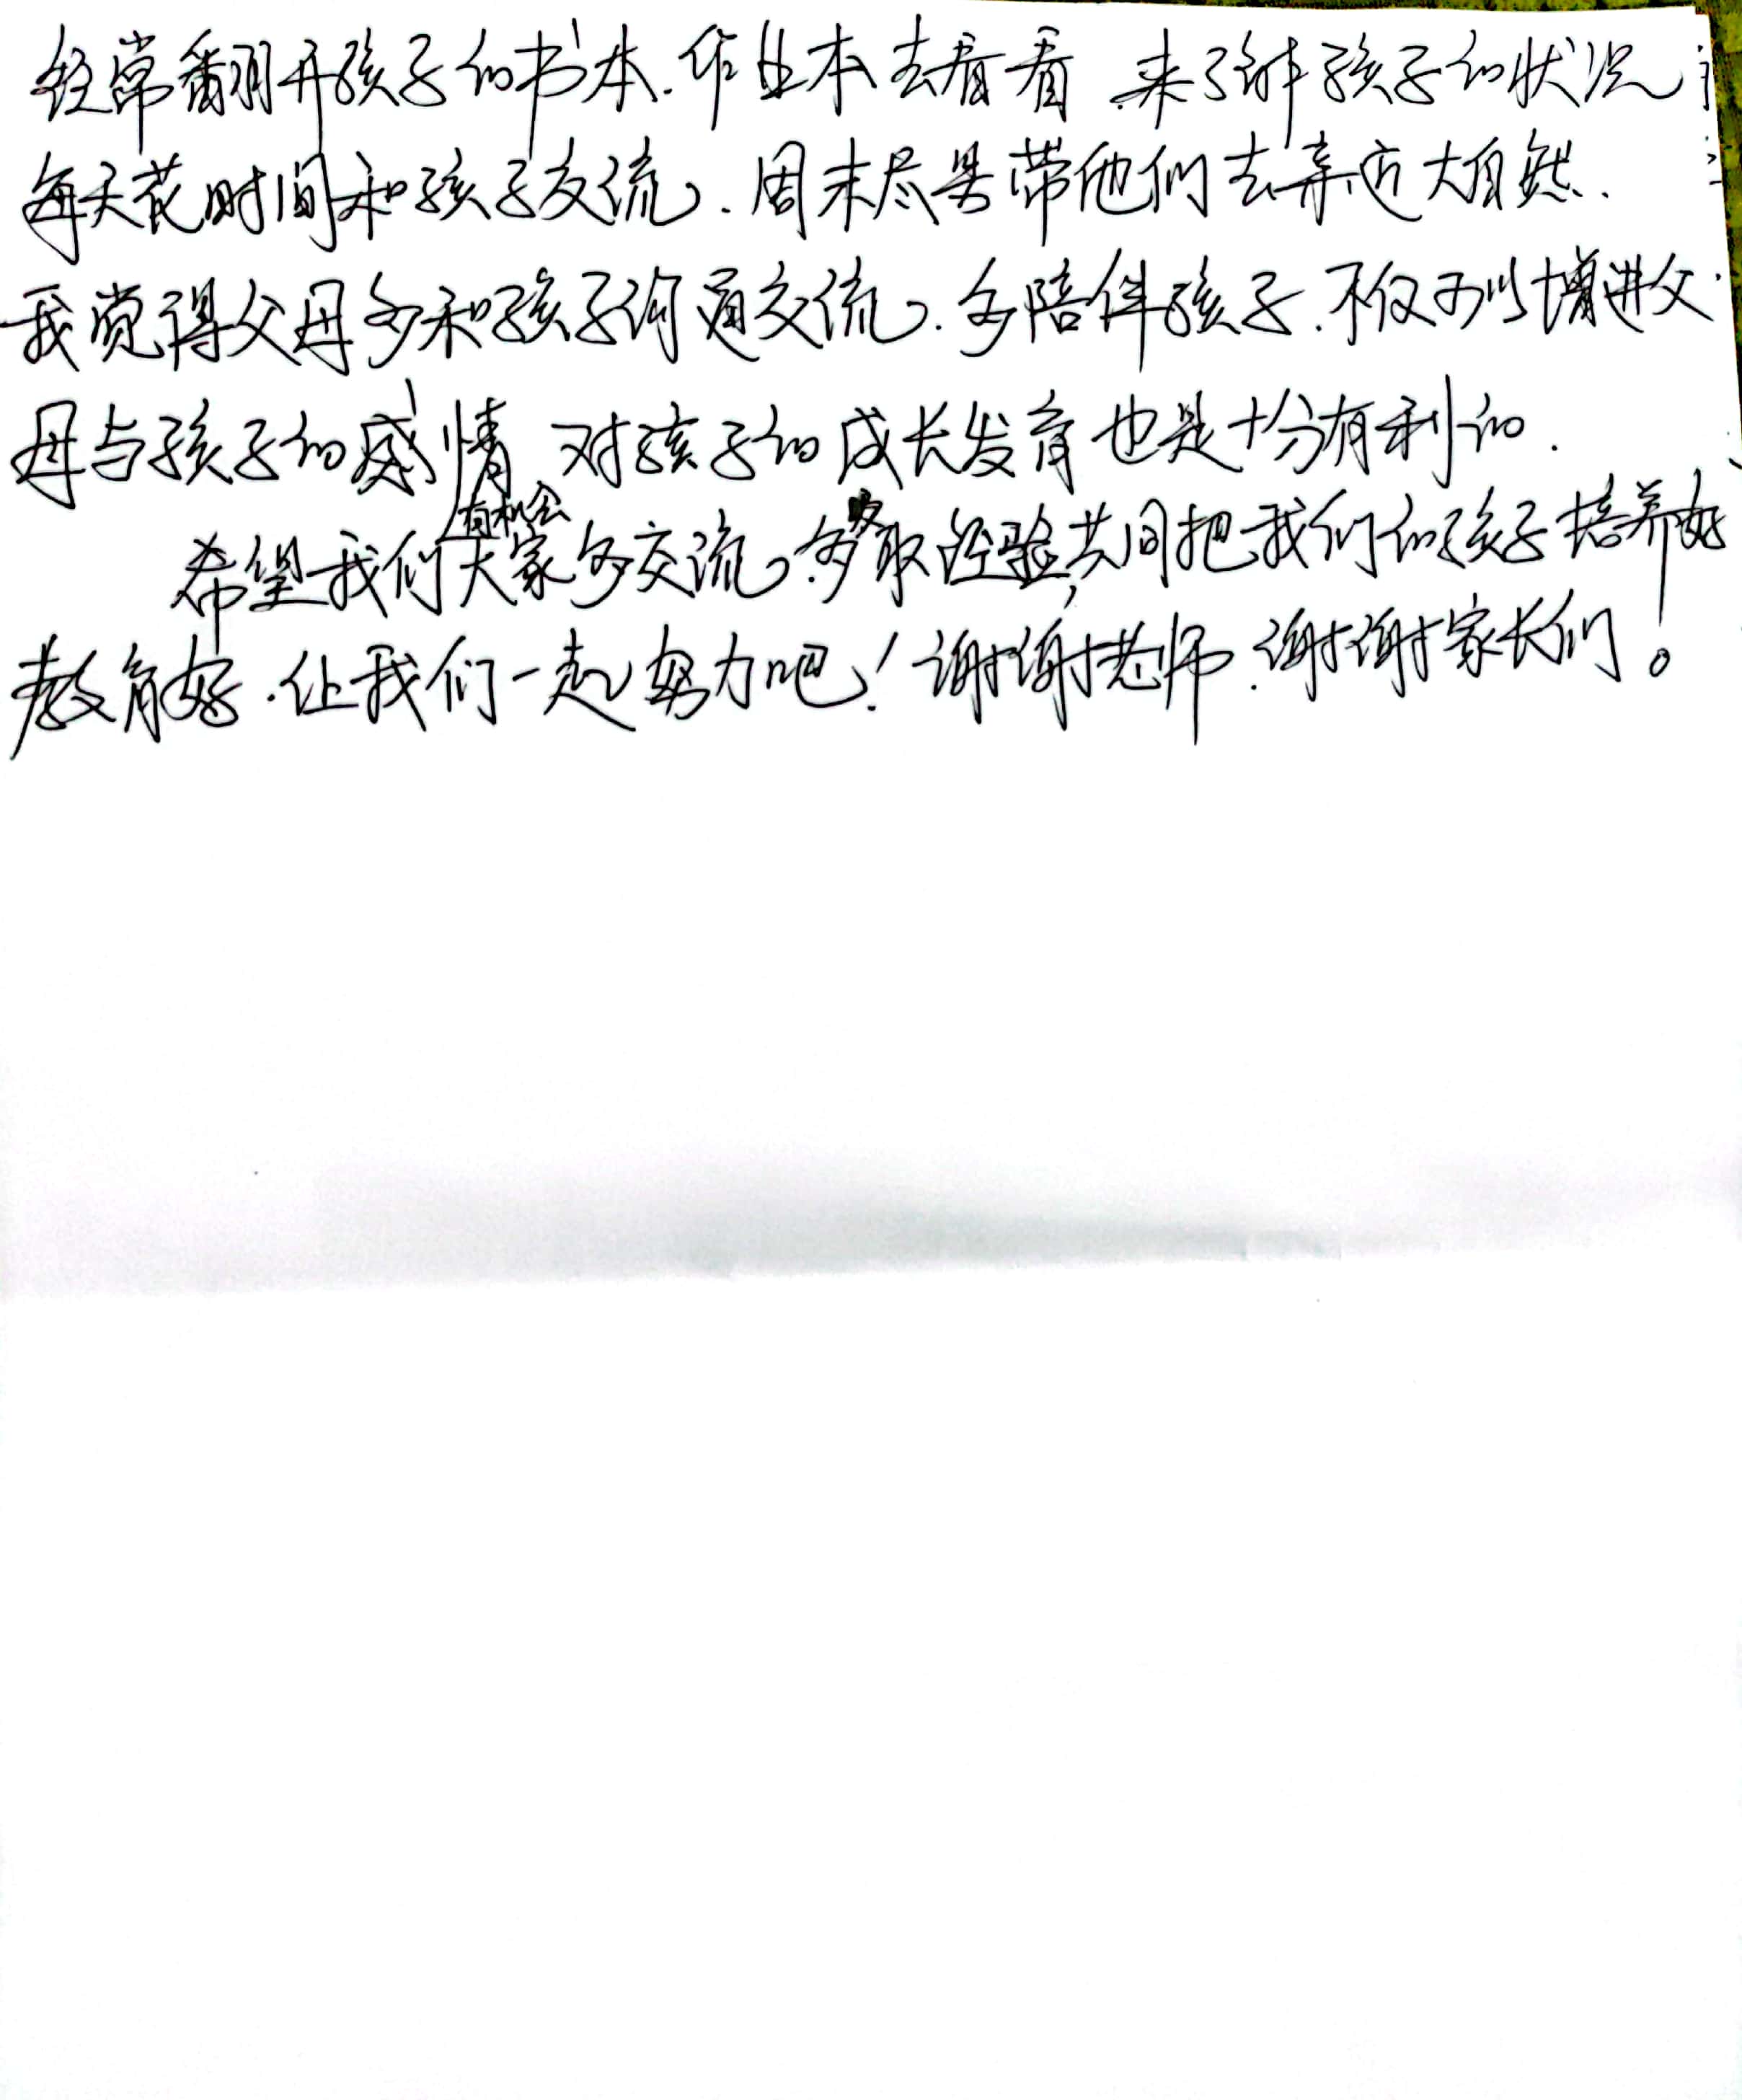 经常翻开孩子的书本.作业本去看看.来了解孩子的状况
每天花时间和孩子交流.周末尽量带他们去亲近大自然.
我觉得父母多和孩子沟通交流.多陪伴孩子.不仅可以增进父
母与孩子的感情 对孩子的成长发育也是十分有利的.
有机会
希望我们大家多交流.多取经验,共同把我们的孩子培养好
教育好.让我们一起努力吧!谢谢老师.谢谢家长们。